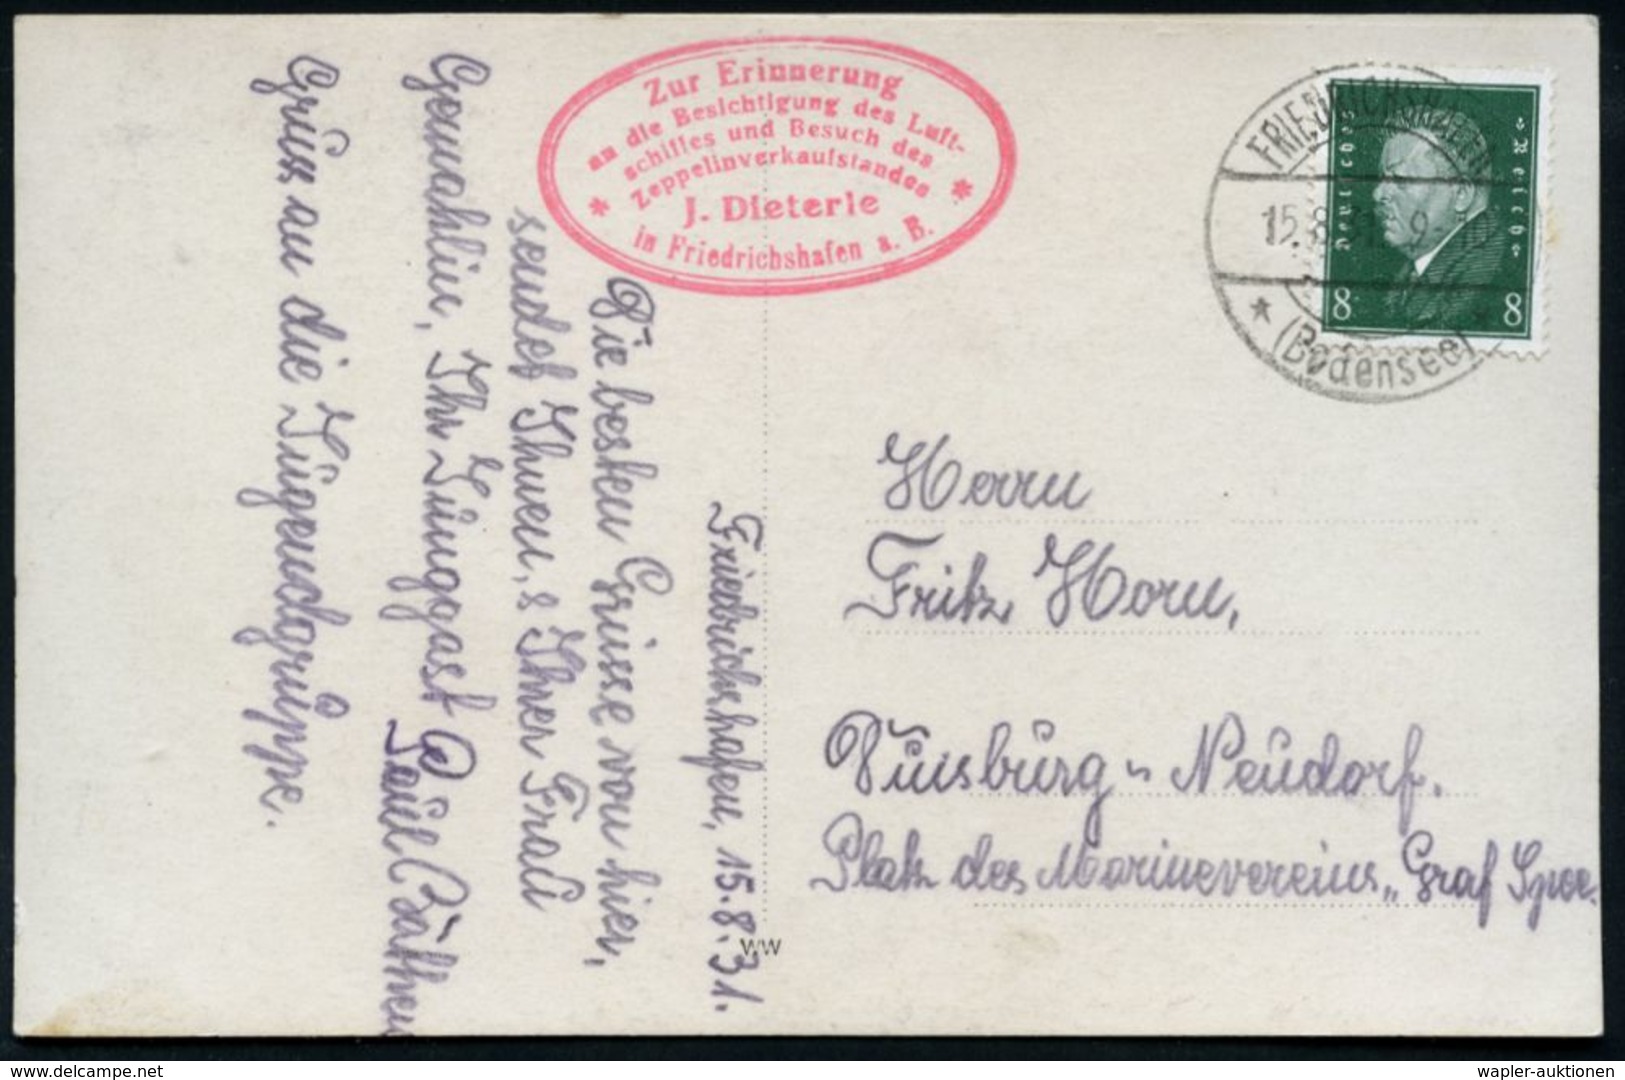 Zur Erinnerung
an die Besichtigung des Luft-
schiffes und Besuch des
Zeppelinverkaufstandes
* J. Dieterle *
in Friedrichshafen a. B.
FRIEDRICHSHAFEN
15.8. 9
* (Bodensee) *
Deutsches Reich
8 8
Friedrichshafen, 15.8.31.
Die besten Grüsse von hier,
sendet Ihnen, & Ihrer Frau
Gemahlin, Ihr Jünggast Paul
Gruss an die Jugendgruppe.
Herrn
Fritz Horn,
Duisburg - Neudorf.
Platz des Marinevereins „Graf Spee.
WW
delcampe.net
wapler-auktionen